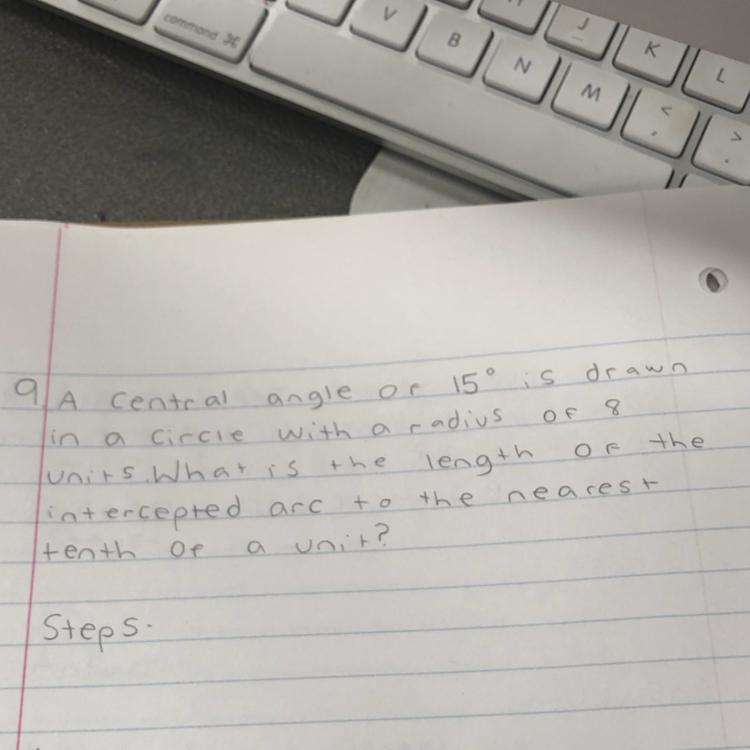 command ⌘
V
B
N
M
J
K
L
<
,
>
.
9. A central angle of 15° is drawn
in a circle with a radius of 8
units. What is the length of the
intercepted arc to the nearest
tenth of a unit?
Steps.